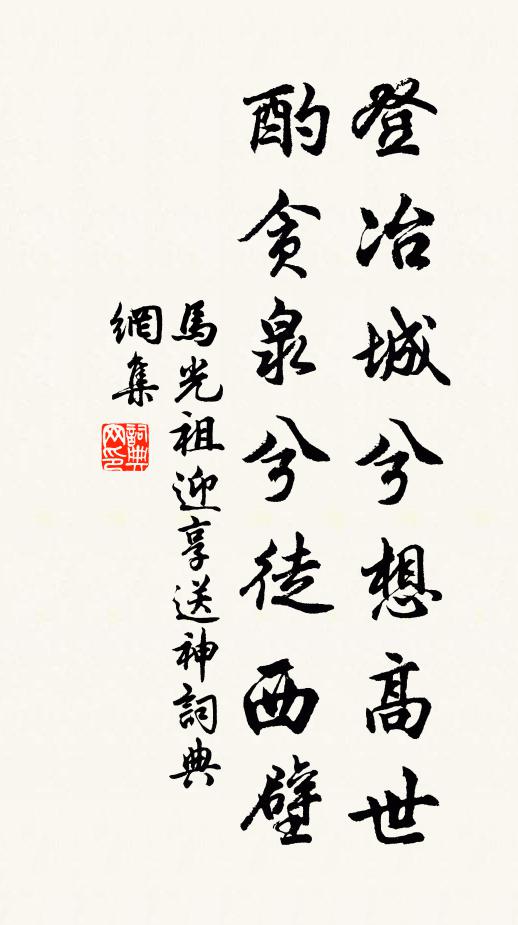 登冶城兮想高世
酌贪泉兮徒西壁
馬光祖迎享送神詞典
網集
詞典網印